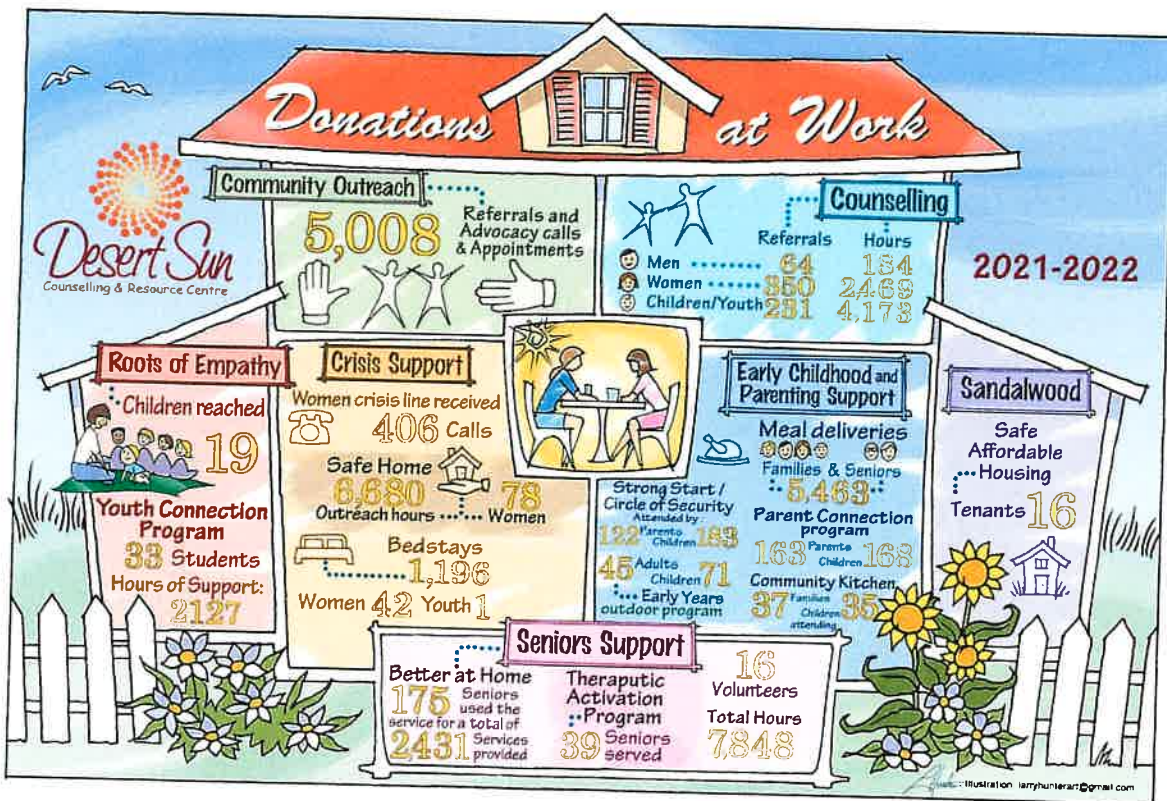 Donations at Work
Desert Sun
Counselling & Resource Centre
2021-2022
Community Outreach
5,008
Referrals and
Advocacy calls
& Appointments
Counselling
Referrals Hours
Men 64 184
Women 350 2,469
Children/Youth 231 4,173
Roots of Empathy
Children reached
19
Youth Connection
Program
33 Students
Hours of Support:
2127
Crisis Support
Women crisis line received
406 Calls
Safe Home
6,680 78
Outreach hours Women
Bedstays
1,196
Women 42 Youth 1
Early Childhood and
Parenting Support
Meal deliveries
Families & Seniors
5,463
Strong Start /
Circle of Security
Attended by:
122 Parents
Children 183
45 Adults
Children 71
Early Years
outdoor program
Parent Connection
program
163 Parents
Children 168
Community Kitchen
37 Families
Children 35
attending
Sandalwood
Safe
Affordable
Housing
Tenants 16
Seniors Support
Better at Home
175 Seniors
used the
service for a total of
2431 Services
provided
Theraputic
Activation
Program
39 Seniors
served
16
Volunteers
Total Hours
7,848
Illustration larryhunterart@gmail.com